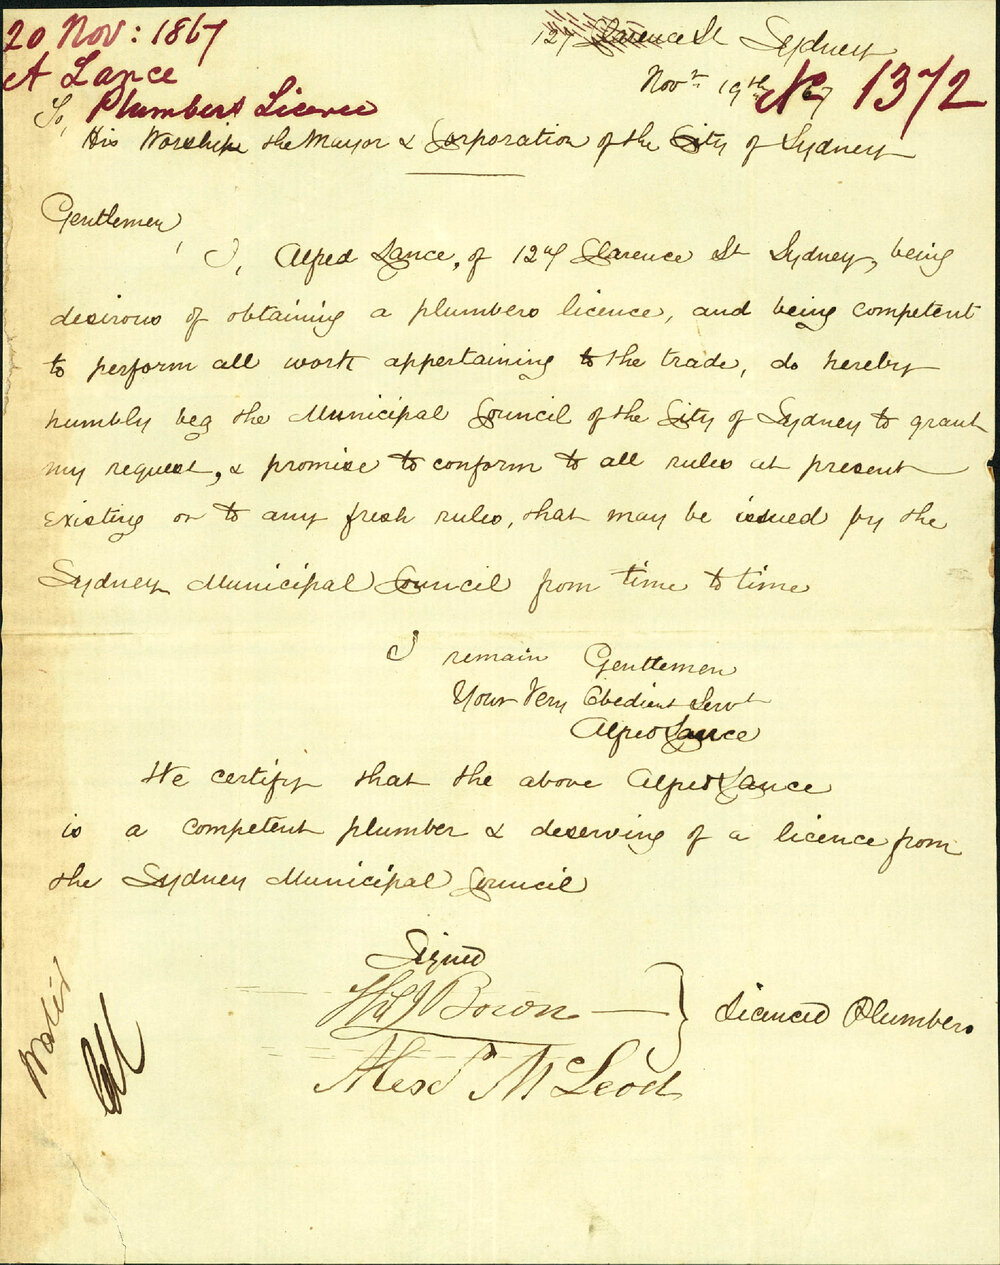 20 Nov: 1867
A Lance
Plumbers Licence
No 1372
127 Clarence St Sydney
Novr 19th 67
To,
His Worship the Mayor & Corporation of the City of Sydney
Gentlemen,
I, Alfred Lance, of 127 Clarence St Sydney, being
desirous of obtaining a plumbers licence, and being competent
to perform all work appertaining to the trade, do hereby
humbly beg the Municipal Council of the City of Sydney to grant
my request, & promise to conform to all rules at present
existing or to any fresh rules, that may be issued by the
Sydney Municipal Council from time to time
I remain Gentlemen
Your Very Obedient Servt
Alfred Lance
We certify that the above Alfred Lance
is a competent plumber & deserving of a licence from
the Sydney Municipal Council
Signed
Bown
Licenced Plumbers
Alexr McLeod
Water